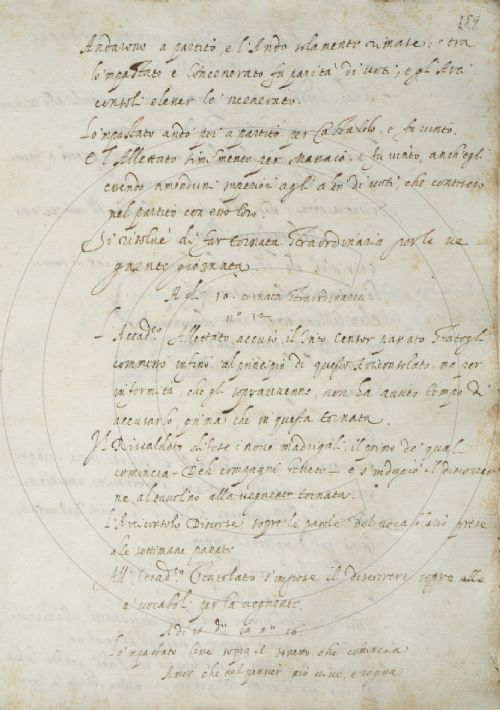 159
Andarono a partito e l'Ando solamente rimase; e tra
lo'mpastato e l'oncenerato fu parità di voti, e gl'Arci
consoli elesser lo'ncenerato.
Lo'mpastato andò poi a partito per Castaldo, e fu vinto.
E l'Allettato similmente per Massaio, e fu vinto, anch'egli
essendo amendue superiori agli altri di voti, che
nel partito con esso loro.
Si risolvé di far tornata straordinaria per la ve
gnente giornata.
A dì 10. tornata straordinaria
n.º 12
L'Accad.º Allettato accusò, il Censor passato
commesso infino al principio di questo Arciconsolato, ma per
infermità, che gli sopravvenne, non ha avuto tempo di
accusarlo, prima che in questa tornata.
Il Riscaldato difese i nove madrigali, il primo de' quali
comincia Deh compagni e s'indugiò il discorrer
ne, al tavolino alla vegnente tornata.
L'Arciconsolo discorse sopra le parole del vocabolario prese
a le settimane passate.
All'Accad.º s'impose il discorrere sopra alle
e vocaboli per la vegnente.
A dì 15 d.º n.º 16
Lo'mpastato lesse sopra il sonetto che comincia
Amor che nel pensier mio vive, e regna